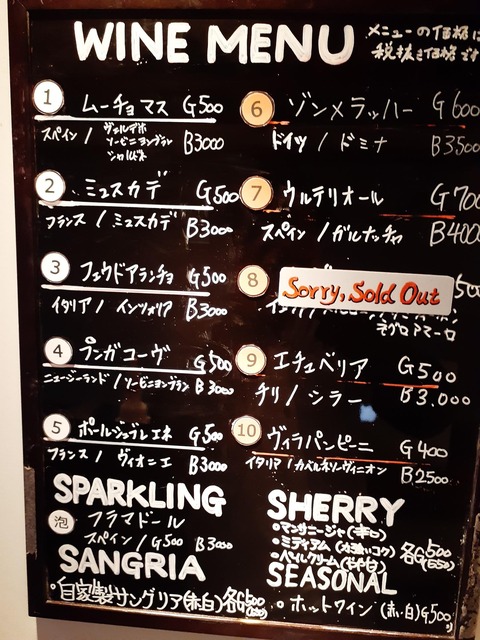 WINE MENU
メニューの価格は
税抜き価格です
1 ムーチョマス G500
スペイン / ヴェルデホ
ソービニヨンブラン
シャルドネ
B3000
2 ミュスカデ G500
フランス / ミュスカデ B3000
3 フェウドアランチョ G500
イタリア / インツォリア B3000
4 プンガコーヴ G500
ニュージーランド / ソービニヨンブラン B3000
5 ポールジュブレエネ G500
フランス / ヴィオニエ B3000
6 ゾンメラッハー G600
ドイツ / ドミナ B3500
7 ウルテリオール G700
スペイン / ガルナッチャ B4000
8 Sorry, Sold Out
ネグロアマーロ
9 エチュベリア G500
チリ / シラー B3,000
10 ヴィラパンピーニ G400
イタリア / カベルネソーヴィニオン B2500
SPARKLING
泡 フラマドール
スペイン / G500 B3000
SANGRIA
・自家製サングリア(赤・白) 各G500
SHERRY
・マンサニージャ(辛口)
・ミディアム(力強いコク) 各G500
・ペイルクリーム(やや甘)
SEASONAL
・ホットワイン (赤・白) G500